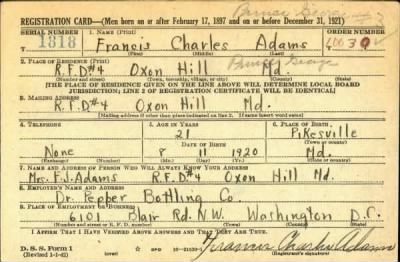 Prince George
REGISTRATION CARD—(Men born on or after February 17, 1897 and on or before December 31, 1921)
SERIAL NUMBER 1. NAME (Print) ORDER NUMBER
1818 Francis Charles Adams
(First) (Middle) (Last)
2. PLACE OF RESIDENCE (Print) Prince George
R.F.D#4 Oxon Hill Md.
(Number and street) (Town, township, village, or city) (County) (State)
[THE PLACE OF RESIDENCE GIVEN ON THE LINE ABOVE WILL DETERMINE LOCAL BOARD
JURISDICTION; LINE 2 OF REGISTRATION CERTIFICATE WILL BE IDENTICAL]
3. MAILING ADDRESS
R.F.D#4 Oxon Hill Md.
[Mailing address if other than place indicated on line 2. If same insert word same]
4. TELEPHONE 5. AGE IN YEARS 6. PLACE OF BIRTH
21 Pikesville
DATE OF BIRTH (Town or county)
None 8 11 1920 Md.
(Exchange) (Number) (Mo.) (Day) (Yr.) (State or country)
7. NAME AND ADDRESS OF PERSON WHO WILL ALWAYS KNOW YOUR ADDRESS
Mrs. F.J. Adams R.F.D#4 Oxon Hill Md.
8. EMPLOYER'S NAME AND ADDRESS
Dr. Pepper Bottling Co.
9. PLACE OF EMPLOYMENT OR BUSINESS
6101 Blair Rd. N.W. Washington D.C.
(Number and street or R. F. D. number) (Town) (County) (State)
I AFFIRM THAT I HAVE VERIFIED ABOVE ANSWERS AND THAT THEY ARE TRUE.
D. S. S. Form 1
(Revised 1-1-42) (over) GPO Francis Charles Adams
(Registrant's signature)